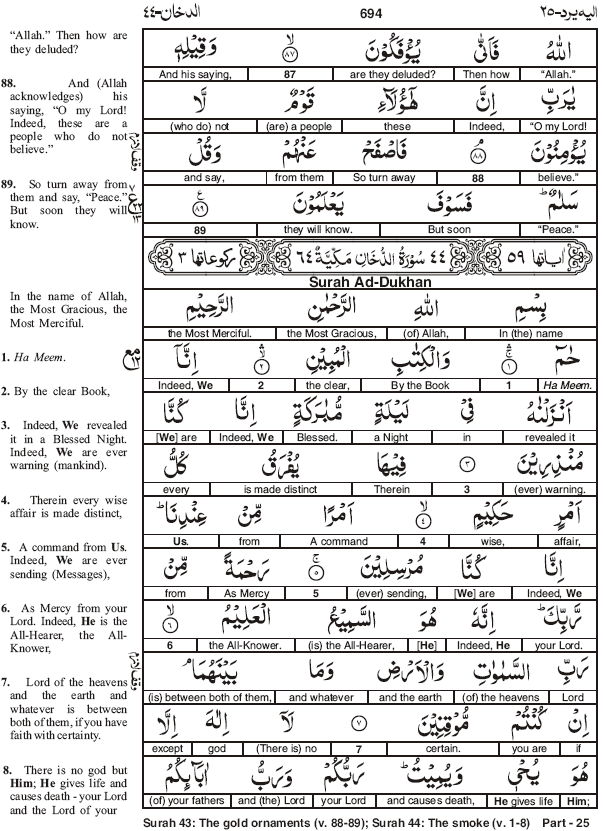 الدخان-٤٤ 694 اليه يرد-٢٥
“Allah.” Then how are
they deluded?
88. And (Allah
acknowledges) his
saying, “O my Lord!
Indeed, these are a
people who do not
believe.”
89. So turn away from
them and say, “Peace.”
But soon they will
know.
In the name of Allah,
the Most Gracious, the
Most Merciful.
1. Ha Meem.
2. By the clear Book,
3. Indeed, We revealed
it in a Blessed Night.
Indeed, We are ever
warning (mankind).
4. Therein every wise
affair is made distinct,
5. A command from Us.
Indeed, We are ever
sending (Messages),
6. As Mercy from your
Lord. Indeed, He is the
All-Hearer, the All-
Knower,
7. Lord of the heavens
and the earth and
whatever is between
both of them, if you have
faith with certainty.
8. There is no god but
Him; He gives life and
causes death - your Lord
and the Lord of your
اللّٰهُ فَاَنّٰى يُؤْفَكُوْنَ ۙ ٨٧ وَقِيْلِهٖ
And his saying, 87 are they deluded? Then how “Allah.”
يٰرَبِّ اِنَّ هٰٓؤُلَآءِ قَوْمٌ لَّا
(who do) not (are) a people these Indeed, “O my Lord!
يُؤْمِنُوْنَ ۘ ٨٨ فَاصْفَحْ عَنْهُمْ وَقُلْ
and say, from them So turn away 88 believe.”
سَلٰمٌ ؕ فَسَوْفَ يَعْلَمُوْنَ ٨٩
89 they will know. But soon “Peace.”
اٰياتها ٥٩ ٤٤ سُوْرَةُ الدُّخَانِ مَكِّيَّةٌ ٦٤ ركوعاتها ٣
Surah Ad-Dukhan
بِسْمِ اللّٰهِ الرَّحْمٰنِ الرَّحِيْمِ
the Most Merciful. the Most Gracious, (of) Allah, In (the) name
حٰمٓ ١ وَالْكِتٰبِ الْمُبِيْنِ ٢ اِنَّآ
Indeed, We 2 the clear, By the Book 1 Ha Meem.
اَنْزَلْنٰهُ فِيْ لَيْلَةٍ مُّبٰرَكَةٍ اِنَّا كُنَّا
[We] are Indeed, We Blessed. a Night in revealed it
مُنْذِرِيْنَ ٣ فِيْهَا يُفْرَقُ كُلُّ
every is made distinct Therein 3 (ever) warning.
اَمْرٍ حَكِيْمٍ ۙ ٤ اَمْرًا مِّنْ عِنْدِنَا ؕ
Us. from A command 4 wise, affair,
اِنَّا كُنَّا مُرْسِلِيْنَ ۚ ٥ رَحْمَةً مِّنْ
from As Mercy 5 (ever) sending, [We] are Indeed, We
رَّبِّكَ ؕ اِنَّهٗ هُوَ السَّمِيْعُ الْعَلِيْمُ ۙ ٦
6 the All-Knower. (is) the All-Hearer, [He] Indeed, He your Lord.
رَبِّ السَّمٰوٰتِ وَالْاَرْضِ وَمَا بَيْنَهُمَا ۘ
(is) between both of them, and whatever and the earth (of) the heavens Lord
اِنْ كُنْتُمْ مُّوْقِنِيْنَ ٧ لَآ اِلٰهَ اِلَّا
except god (There is) no 7 certain. you are if
هُوَ يُحْيٖ وَيُمِيْتُ ؕ رَبُّكُمْ وَرَبُّ اٰبَآئِكُمُ
(of) your fathers and (the) Lord your Lord and causes death, He gives life Him;
Surah 43: The gold ornaments (v. 88-89); Surah 44: The smoke (v. 1-8) Part - 25